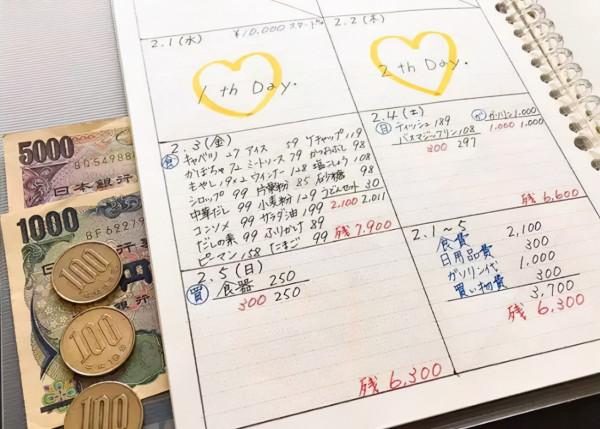 ¥10,000 スタート
2.1 (水)
1 th Day.
2.2 (木)
2 th Day.
2.3 (金)
食
キャベツ 27 アイス 59 ケチャップ 119
かぼちゃ 72 ミートソース 79 かつおぶし 98
もやし 19×2 ウィンナー 128 塩こしょう 108
シロップ 99 片栗粉 85 砂糖 98
中華だし 99 小麦粉 129 うどんセット 30
コンソメ 99 サラダ油 199 2,100 2,011
だしの素 99 ふりかけ 89
ピーマン 158 たまご 99 残 7,900
2.4 (土)
日 ティッシュ 189
バスマジックリン 108
300 297
ガ ガソリン 1,000
1,000 1,000
残 6,600
2.5 (日)
買 食器 250
300 250
残 6,300
2.1〜5
食費 2,100
日用品費 300
ガソリン代 1,000
買い物費 300
3,700
残 6,300
5000
日本銀行
1000
銀行
円
100
100
100